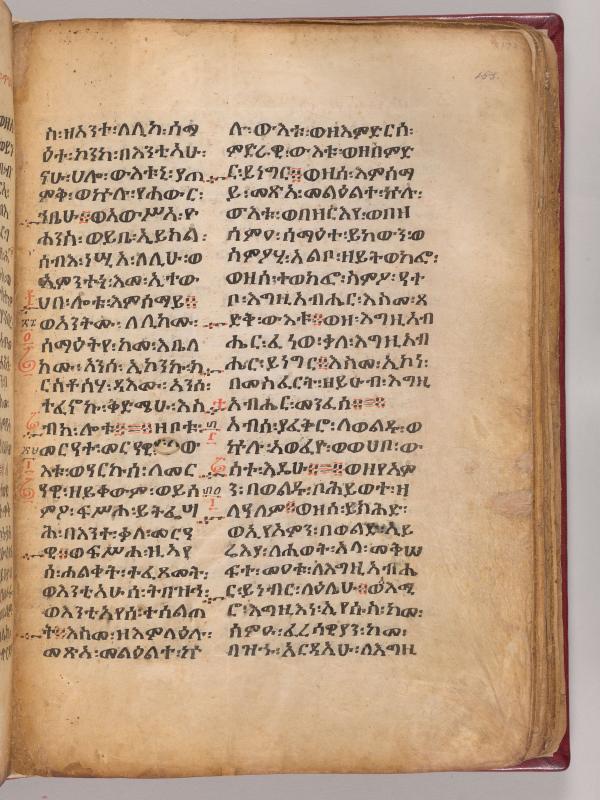 ስ፡ዘአንተ፡ለሊከ፡ሰማ
ዕተ፡ኮንከ፡በእንቲአሁ፡
ናሁ፡ሀሎ፡ውእቱኒ፡ያጠ
ምቅ፡ወኵሉ፡የሐውር፡
ኀቤሁ።ወአውሥአ፡ዮ
ሐንስ፡ወይቤ፡ኢይክል፡
ሰብእ፡ነሢአ፡ለሊሁ፡ወ
ኢምንተኒ፡እመ፡ኢተው
ህበ፡ሎቱ፡እምሰማይ።
ወአንትሙ፡ለሊክሙ፡
ሰማዕትየ፡ከመ፡እቤለ
ክሙ፡አንሰ፡ኢኮንኩ፡ክ
ርስቶስሃ፡ዳእሙ፡አንሰ፡
ተፈኖኩ፡ቅድሜሁ፡እስ
ብከ፡ሎቱ።ዘቦቱ፡
መርዓተ፡መርዓዊ፡ው
እቱ፡ወዓርኩሰ፡ለመር
ዓዊ፡ዘይቀውም፡ወይሰ
ምዖ፡ፍሥሐ፡ይትፌሣ
ሕ፡በእንተ፡ቃለ፡መርዓ
ዊ።ወፍሥሐ፡ዚአየ
ሰ፡ሐልቀት፡ተፈጸመት፡
ወእንቲአሁሰ፡ትበዝኅ፡
ወእንቲአየሰ፡ተሰልጠ
ት።እስመ፡ዘእምላዕሉ፡
መጽአ፡መልዕልተ፡ኵ
ሉ፡ውእቱ፡ወዘእምድርሰ፡
ምድራዊ፡ውእቱ፡ወዘበምድ
ር፡ይነግር።ወዘሰ፡እምሰማ
ይ፡መጽአ፡መልዕልተ፡ኵሉ፡
ውእቱ፡ወበዘርእየ፡ወበዘ
ሰምዐ፡ሰማዕተ፡ይከውን፡ወ
ስምዖሂ፡አልቦ፡ዘይትወከፎ፡
ወዘሰ፡ተወክፎ፡ስምዖ፡ዔተ
ቦ፡እግዚአብሔር፡እስመ፡ጻ
ድቅ፡ውእቱ።ወዘ፡እግዚአብ
ሔር፡ፈነወ፡ቃለ፡እግዚአብ
ሔር፡ይነግር።እስመ፡ኢኮነ፡
በመስፈርት፡ዘይሁብ፡እግዚ
አብሔር፡መንፈሰ።
አብሰ፡ያፈቅሮ፡ለወልዱ፡ወ
ኵሉ፡አወፈዮ፡ወወሀቦ፡ው
ስተ፡እዴሁ።ወዘየአም
ን፡በወልዱ፡ቦ፡ሕይወት፡ዘ
ለዓለም።ወዘሰ፡ይክሕድ፡
ወኢየአምን፡በወልድ፡ኢይ
ሬእያ፡ለሕይወት፡አላ፡መቅሠ
ፍተ፡መዐቱ፡ለእግዚአብሔ
ር፡ይነብር፡ላዕሌሁ።ወአእመ
ሮ፡እግዚእነ፡ኢየሱስ፡ከመ፡
ሰምዑ፡ፈሪሳዊያን፡ከመ፡
በዝኁ፡አርዳኢሁ፡ለእግዚ